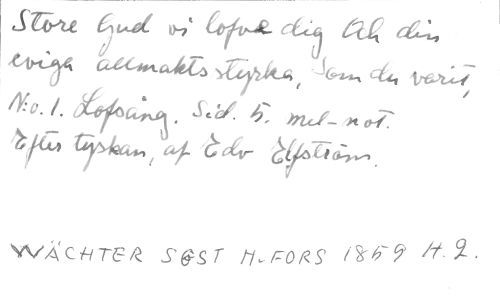 Store Gud vi lofve dig Och din
eviga allmakts styrka, Som du varit,
N:o. 1. Lofsång. Sid. 5. mel-not.
Efter tyskan, af Edv Elfström.
WÄCHTER SGST H-FORS 1859 H. 2.